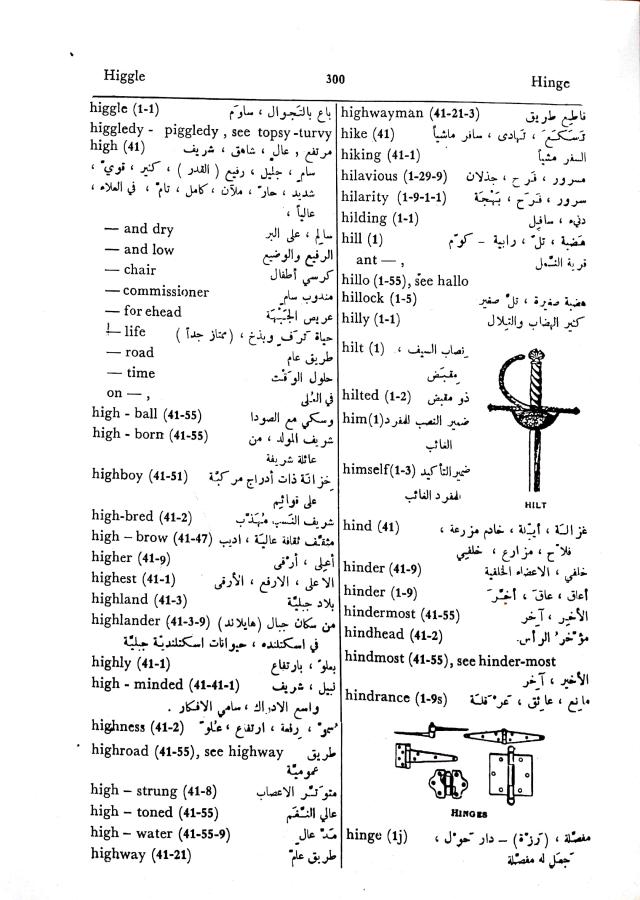 Higgle 300 Hinge
higgle (1-1) باع بالتجوال ، ساوم
higgledy - piggledy, see topsy-turvy
high (41) مرتفع ، عالٍ ، شاهق ، شريف
سامٍ ، جليل ، رفيع ( القدر ) ، كثير ، قويّ ،
شديد ، حارّ ، ملآن ، كامل ، تامّ ، في العلاء ،
عالياً ،
— and dry سالم ، على البر
— and low الرفيع والوضيع
— chair كرسي أطفال
— commissioner مندوب سامٍ
— for ehead عريض الجَبْهة
— life حياة تَرَف وبذخ ، (ممتاز جداً )
— road طريق عام
— time حلول الوقت
on — , في العُلى
high - ball (41-55) وسكي مع الصودا
high - born (41-55) شريف المولد ، من
عائلة شريفة
highboy (41-51) خزانة ذات أدراج مركبّة
على قوائم
high-bred (41-2) شريف النسب مُهَذّب
high – brow (41-47) مثقف ثقافة عالية ، اديب
higher (41-9) أعلى ، أرقى
highest (41-1) الاعلى ، الارفع ، الأرقى
highland (41-3) بلاد جبليّة
highlander (41-3-9) من سكان جبال (هايلاند )
في اسكتلنده ، حيوانات اسكتلنديّة جبليّة
highly (41-1) بعلوّ ، بارتفاع
high - minded (41-41-1) نبيل ، شريف
واسع الادراك ، سامي الافكار .
highness (41-2) سموّ ، رفعة ، ارتفاع ، عُلوّ
highroad (41-55), see highway طريق
عموميّة
high – strung (41-8) متوتّر الاعصاب
high – toned (41-55) عالي النَّغَم
high – water (41-55-9) مَدّ عالٍ
highway (41-21) طريق عامّ
highwayman (41-21-3) قاطع طريق
hike (41) تَسَكّعَ ، تهادى ، سافر ماشياً
hiking (41-1) السفر مشياً
hilavious (1-29-9) مسرور ، فَرِح ، جذلان
hilarity (1-9-1-1) سرور ، فَرَح ، بَهْجَة
hilding (1-1) دنيء ، سافل
hill (1) هَضبة ، تلّ ، رابية - كوّم
ant — , قرية النَّمل
hillo (1-55), see hallo
hillock (1-5) هضبة صغيرة ، تلّ صغير
hilly (1-1) كثير الهضاب والتلال
hilt (1) نِصاب السيف ،
مِقبَض
hilted (1-2) ذو مقبض
him(1) ضمير النصب المفرد
الغائب
himself(1-3) ضمير التأكيد
المفرد الغائب
HILT
hind (41) غزالة ، أيّلة ، خادم مزرعة ،
فلاّح ، مزارع ، خلفيّ
hinder (41-9) خلفي ، الاعضاء الخلفية
hinder (1-9) أعاق ، عاقَ ، أخّرَ
hindermost (41-55) الأخير ، آخر
hindhead (41-2) مؤخّر الرأس.
hindmost (41-55), see hinder-most
الأخير ، آخر
hindrance (1-9s) مانع ، عائق ، عرقلة
HINGES
hinge (1j) مفصّلة ، (رَزّة) – دار حول ،
جعل له مفصّلة